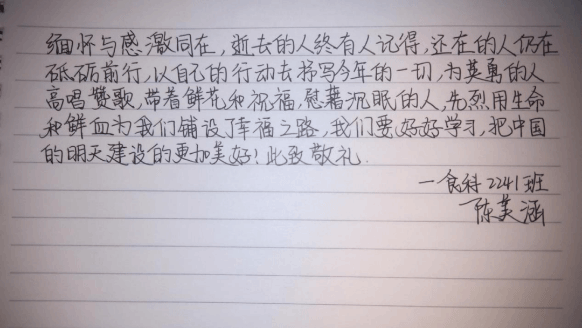 缅怀与感激同在，逝去的人终有人记得，还在的人仍在
砥砺前行，以自己的行动去抒写今年的一切，为英勇的人
高唱赞歌，带着鲜花和祝福，慰藉沉眠的人，先烈用生命
和鲜血为我们铺设了幸福之路，我们要好好学习，把中国
的明天建设的更加美好！此致敬礼.
一食科2241班
陈美涵